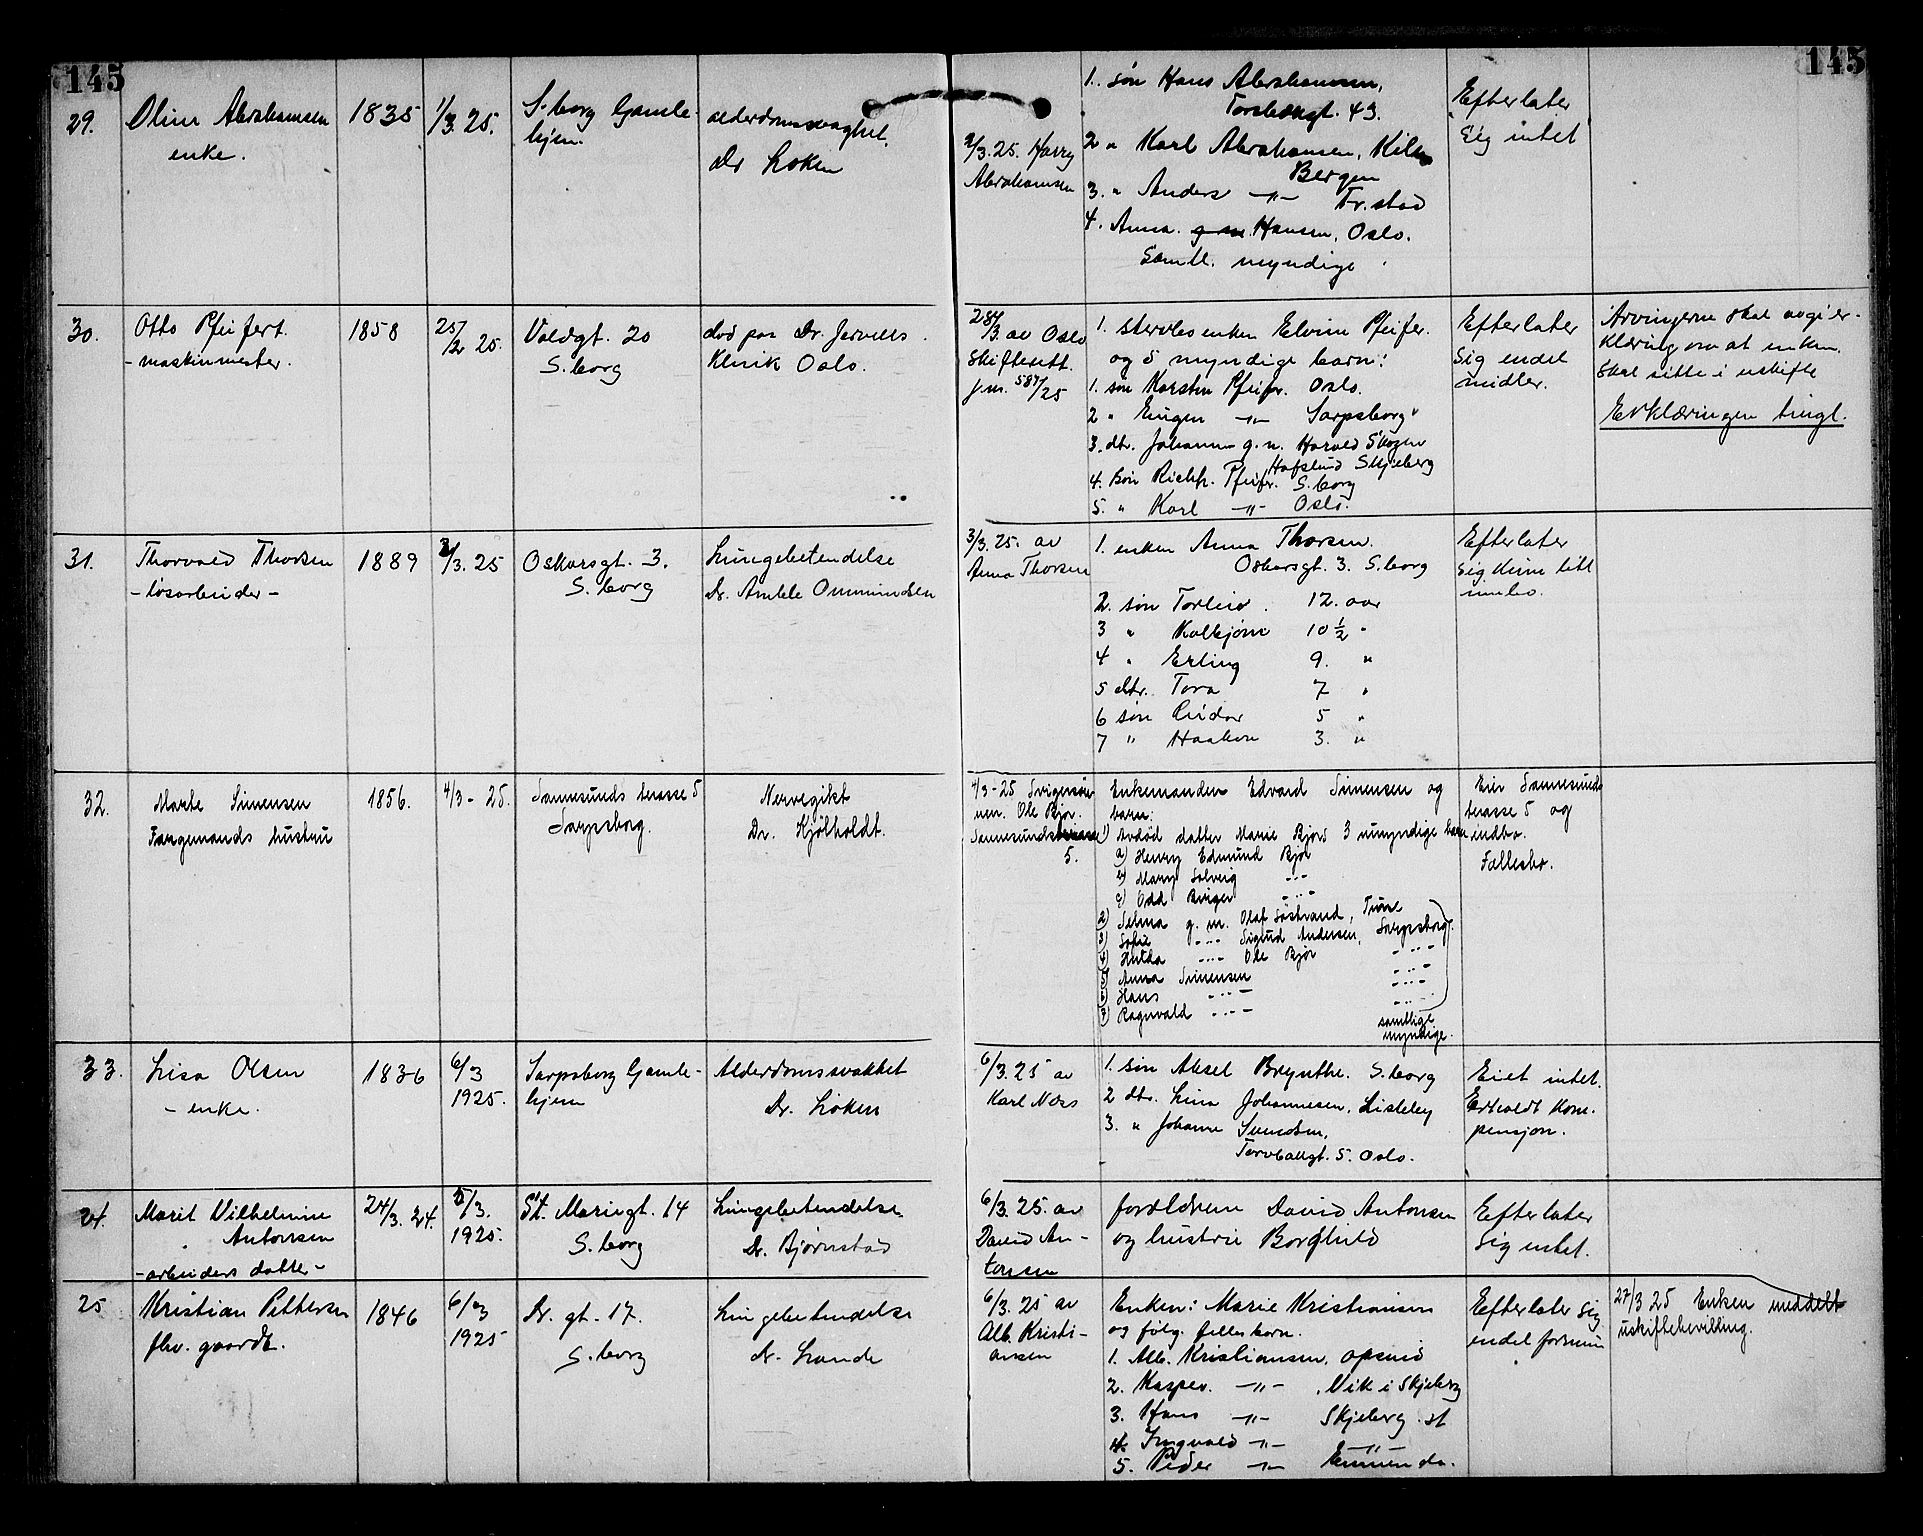 145
145
29. Oline Abrahamsen 1835 1/3. 25. S.borg Gamle- alderdomssvaghet.
enke. hjem. Dr Løken
2/3. 25. Harry
Abrahamsen
1. søn Hans Abrahamsen,
43.
2 " Karl Abrahamsen,
Bergen
3. " Anders -"- Fr.stad
4. Anna Hansen, Oslo.
Samtl. myndige
Efterlater
sig intet
30. Otto Pfeifert 1858 25/2 25. Voldgt. 20 død paa Dr. Jervells
- maskinmester. S.borg Klinik Oslo.
28/3. av Oslo
Skifterett.
j.nr. 587/25
1. Stervbosenken Elvine Pfeifer.
og 5 myndige barn:
1. søn Karsten Pfeifer. Oslo.
2 " Eugen -"- Sarpsborg
3. dtr. Johanne g.m. Harald Skogen
Hafslund Skjeberg
4. søn Pfeifer. S.borg
5. " Karl -"- Oslo.
Efterlater
sig endel
midler.
Arvingerne skal avgi er-
klæring om at enken
skal sitte i uskifte
Erklæringen tingl.
31. Thorvald Thorsen 1889 2/3. 25 Oskarsgt. 3. Lungebetendelse
- løsarbeider - S.borg Dr. Amble Ommundsen
3/3. 25. av
Anna Thorsen
1. enken Anna Thorsen.
Oskarsgt. 3. S.borg
2. søn Torleiv. 12. aar
3 " Kolbjørn 10 1/2 "
4 " Erling 9. "
5 dtr. Tora 7 "
6 søn Reidar 5 "
7 " Haakon 3. "
Efterlater
sig kun litt
innbo.
32. Marte Simensen 1856. 4/3 - 25. Sannesunds terasse 5 Nervegikt
Fangemands hustru Sarpsborg. Dr. Kjølholdt.
4/3 - 25 Svigersøn-
nen. Ole Bjør.
Sannesundsterasse
5.
Enkemanden Edvard Simensen og
barn:
1) Avdød datter Marie Bjørs 3 umyndige barn
a) Henry Edmund Bjør
b) Mary Solveig -"-
c) Odd Birger -"-
2) Selma g. m. Olaf Søstrand, Tune
3) Sofie -"- Sigurd Andersen, Sarpsborg.
4) Hulda -"- Ole Bjør -"-
5) Anna Simensen -"-
6) Hans -"- -"-
7) Ragnvald -"-
samtlige
myndige.
Eier Sannesunds
terasse 5 og
indbo.
Fællesbo.
33. Lisa Olsen 1836 6/3 Sarpsborg Gamle- Alderdomssvakhet
- enke. 1925. hjem Dr. Løken
6/3. 25 av
Karl Næs
1. søn Aksel Brynthe. S.borg
2 dtr. Lina Johannesen, Lisleby
3. " Johanne Svendsen,
5. Oslo.
Eiet intet.
Erholdt kom.
pensjon.
24. Marit Vilhelmine 24/3. 24. 5/3. St. Mariegt. 14 Lungebetendelse
Antonsen 1925. S.borg Dr. Bjørnstad
- arbeiders datter -
6/3. 25. av
David An-
tonsen
forældrene David Antonsen
og hustru Borghild
Efterlater
sig intet.
25 Kristian Pettersen 1846 6/3 Dr. gt. 17. Lungebetendelse
fhv. gaardb. 1925 S.borg Dr. Lande
6/3. 25 av
Alb. Kristi-
ansen
Enken: Marie Kristiansen
og følg. felles barn.
1. Alb. Kristiansen, Opsund
2. Kasper. -"- , Vik i Skjeberg
3. Hans -"- Skjeberg st
4. Ingvald -"- -"-
5. Peder -"-
Efterlater sig
endel formue
27/3 25 Enken meddelt
uskiftebevilling.